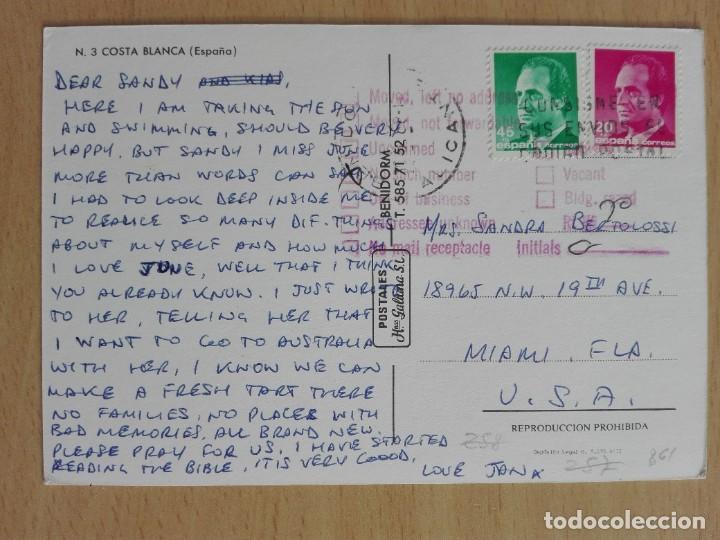 N. 3 COSTA BLANCA (España)
DEAR SANDY AND KIDS,
HERE I AM TAKING THE SUN
AND SWIMMING, SHOULD BE VERY
HAPPY. BUT SANDY I MISS JUNE
MORE THAN WORDS CAN SAY.
I HAD TO LOOK DEEP INSIDE ME
TO REALICE SO MANY DIF. THING
ABOUT MYSELF AND HOW MUCH
I LOVE JUNE, WELL THAT I THINK
YOU ALREADY KNOW. I JUST WROTE
TO HER, TELLING HER THAT
I WANT TO GO TO AUSTRALIA
WITH HER, I KNOW WE CAN
MAKE A FRESH TART THERE
NO FAMILIES, NO PLACES WITH
BAD MEMORIES, ALL BRAND NEW.
PLEASE PRAY FOR US, I HAVE STARTED
READING THE BIBLE, IT IS VERY GOOOD,
LOVE JANA
BENIDORM
T. 585 71 52
POSTALES
Hnos Galiana S.L.
45
españa correos
20
españa correos
Moved, left no address
Moved, not forwardable
Unclaimed
No such number
Vacant
Out of business
Bldg. razed
Addressee unknown
No mail receptacle Initials
MRS. SANDRA BERTOLOSSI
18965 N.W. 19TH AVE.
MIAMI. FLA.
U.S.A.
REPRODUCCION PROHIBIDA
258
257
861
todocoleccion
todocoleccion.net